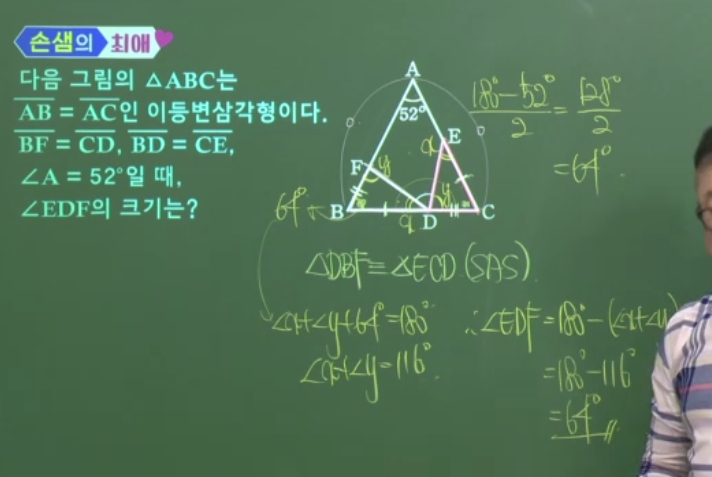 손샘의 최애
다음 그림의 △ABC는
AB = AC인 이등변삼각형이다.
BF = CD, BD = CE,
∠A = 52°일 때,
∠EDF의 크기는?
A
52°
E
x
F
y
64°
B
x
D
y
C
180°-52°/2 = 128°/2
= 64°.
△DBF≡△ECD (SAS).
∠x+∠y+64°=180°
∠x+∠y=116°.
∴∠EDF=180°-(∠x+∠y)
=180°-116°
=64°